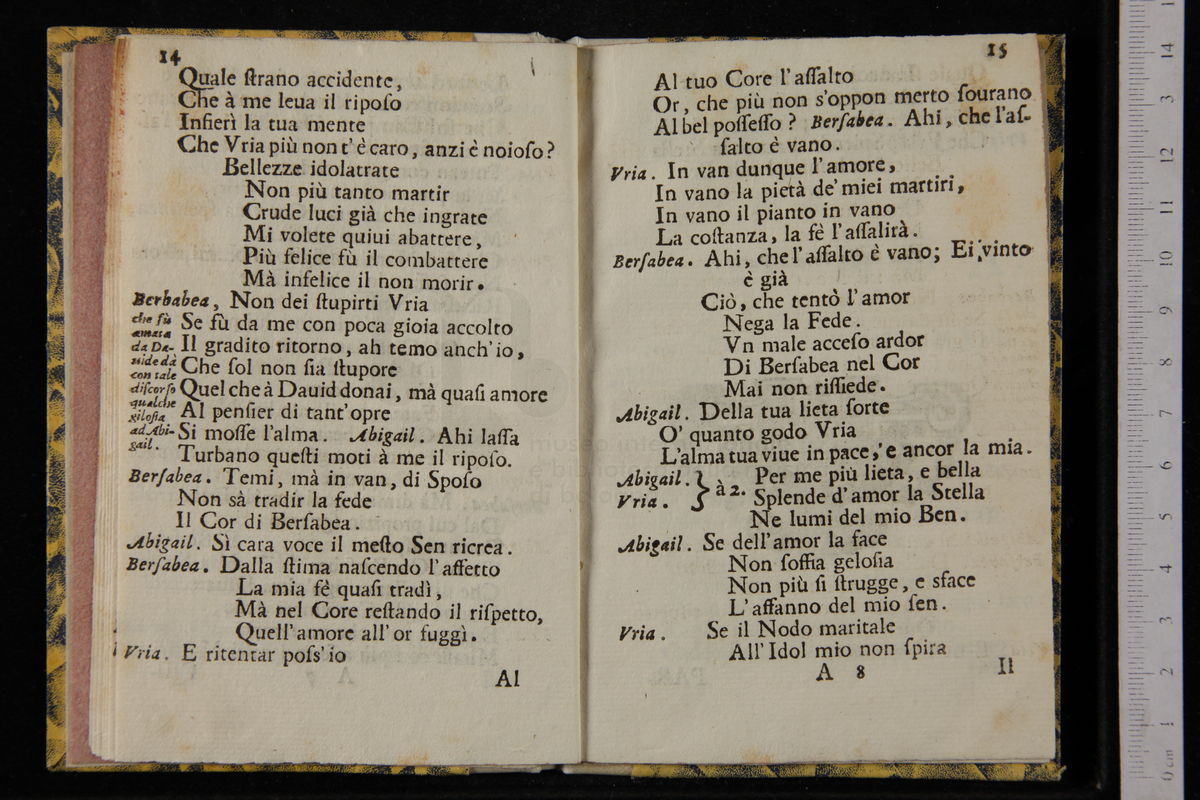 14
Quale ſtrano accidente,
Che à me leua il ripoſo
Inſierì la tua mente
Che Vria più non t'è caro, anzi è noioſo?
Bellezze idolatrate
Non più tanto martir
Crude luci già che ingrate
Mi volete quiui abattere,
Più felice fù il combattere
Mà infelice il non morir.
Berbabea, Non dei ſtupirti Vria
che fù
amata
da Da-
uide dà
con tale
diſcorſo
qualche
giloſia
ad Abi-
gail.
Se fù da me con poca gioia accolto
Il gradito ritorno, ah temo anch'io,
Che ſol non ſia ſtupore
Quel che à Dauid donai, mà quaſi amore
Al penſier di tant'opre
Si moſſe l'alma. Abigail. Ahi laſſa
Turbano queſti moti à me il ripoſo.
Berſabea. Temi, mà in van, di Spoſo
Non sà tradir la fede
Il Cor di Berſabea.
Abigail. Sì cara voce il meſto Sen ricrea.
Berſabea. Dalla ſtima naſcendo l'affetto
La mia fè quaſi tradì,
Mà nel Core reſtando il riſpetto,
Quell'amore all'or fuggì.
Vria. E ritentar poſs'io
Al
15
Al tuo Core l'aſſalto
Or, che più non s'oppon merto ſourano
Al bel poſſeſſo? Berſabea. Ahi, che l'aſ-
ſalto è vano.
Vria. In van dunque l'amore,
In vano la pietà de' miei martiri,
In vano il pianto in vano
La coſtanza, la fè l'aſſalirà.
Berſabea. Ahi, che l'aſſalto è vano; Ei vinto
è già
Ciò, che tentò l'amor
Nega la Fede.
Vn male acceſo ardor
Di Berſabea nel Cor
Mai non riſſiede.
Abigail. Della tua lieta ſorte
O' quanto godo Vria
L'alma tua viue in pace, e ancor la mia.
Abigail. } à 2. Per me più lieta, e bella
Vria. } Splende d'amor la Stella
Ne lumi del mio Ben.
Abigail. Se dell'amor la face
Non ſoffia geloſia
Non più ſi ſtrugge, e sface
L'affanno del mio ſen.
Vria. Se il Nodo maritale
All'Idol mio non ſpira
A 8
Il